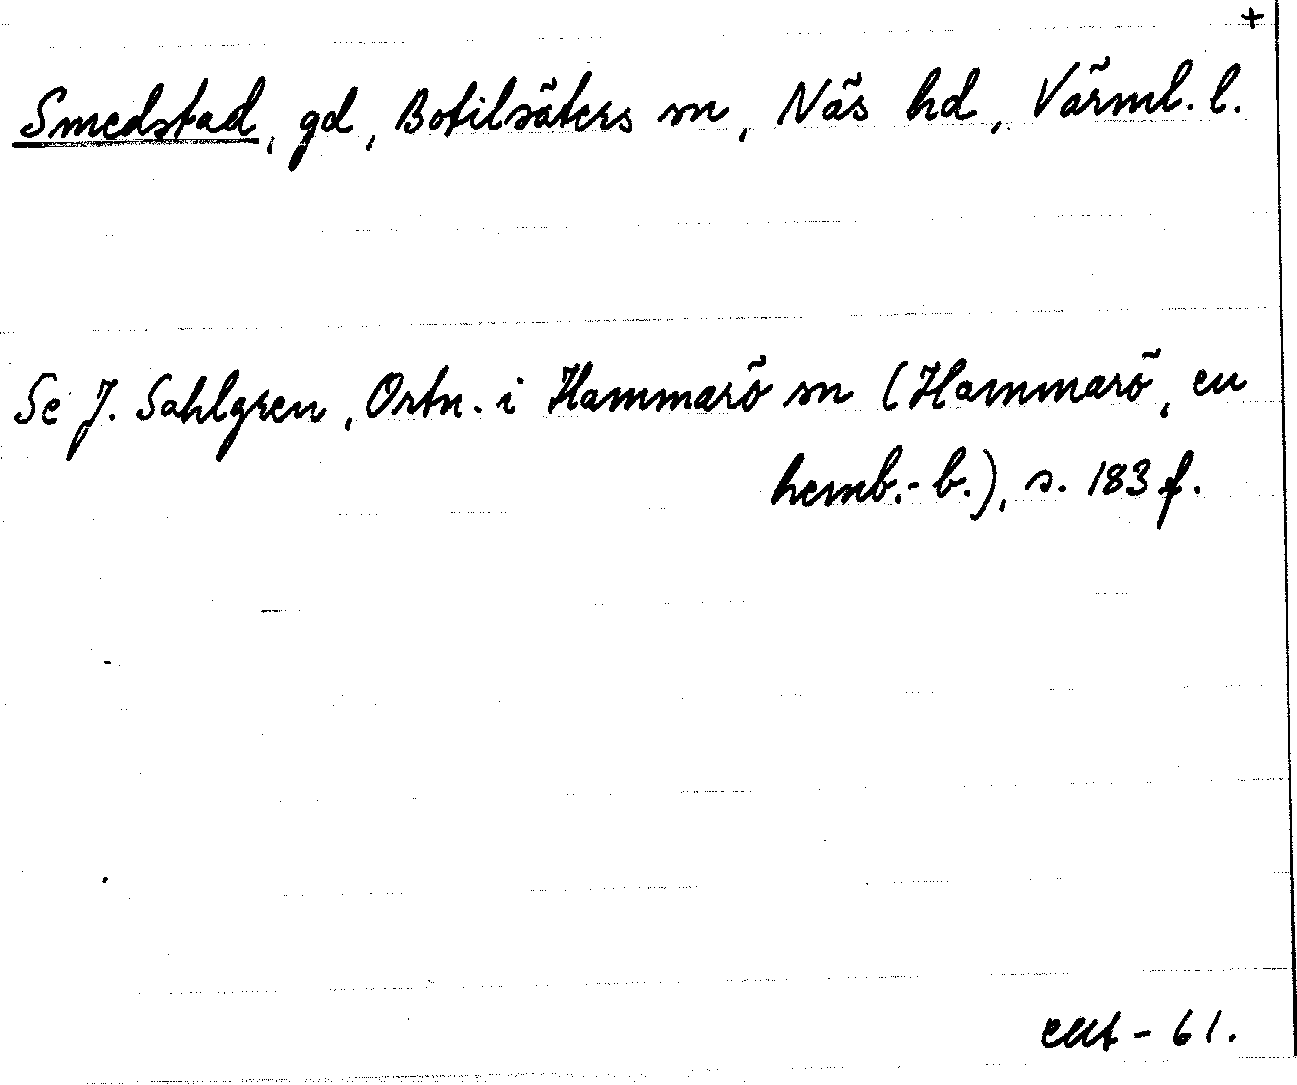 +
Smedstad, gd, Botilsäters sn, Näs hd, Värml. l.
Se J. Sahlgren, Ortn. i Hammarö sn (Hammarö, en
hemb.-b.), s. 183 f.
- 61.